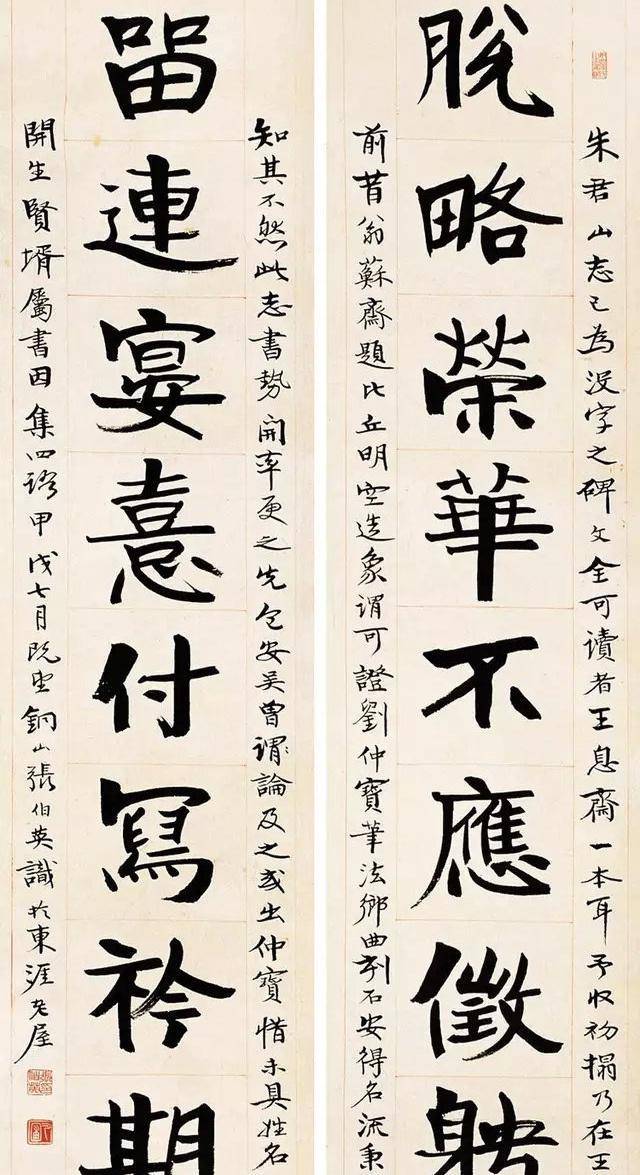 朱君山志已為沒字之碑文全可讀者王息齋一本耳予收初搨乃在王
脫略榮華不應徵聘
前昔翁蘇齋題比丘明空造象謂可證劉仲寶筆法鄉曲刻石安得名流秉
知其不然此志書勢開率更之先包安吳曾謂論及之或出仲寶惜未具姓名
留連宴憙付寫衿期
開生賢壻屬書因集四語甲戌七月既望銅山張伯英識於東涯老屋